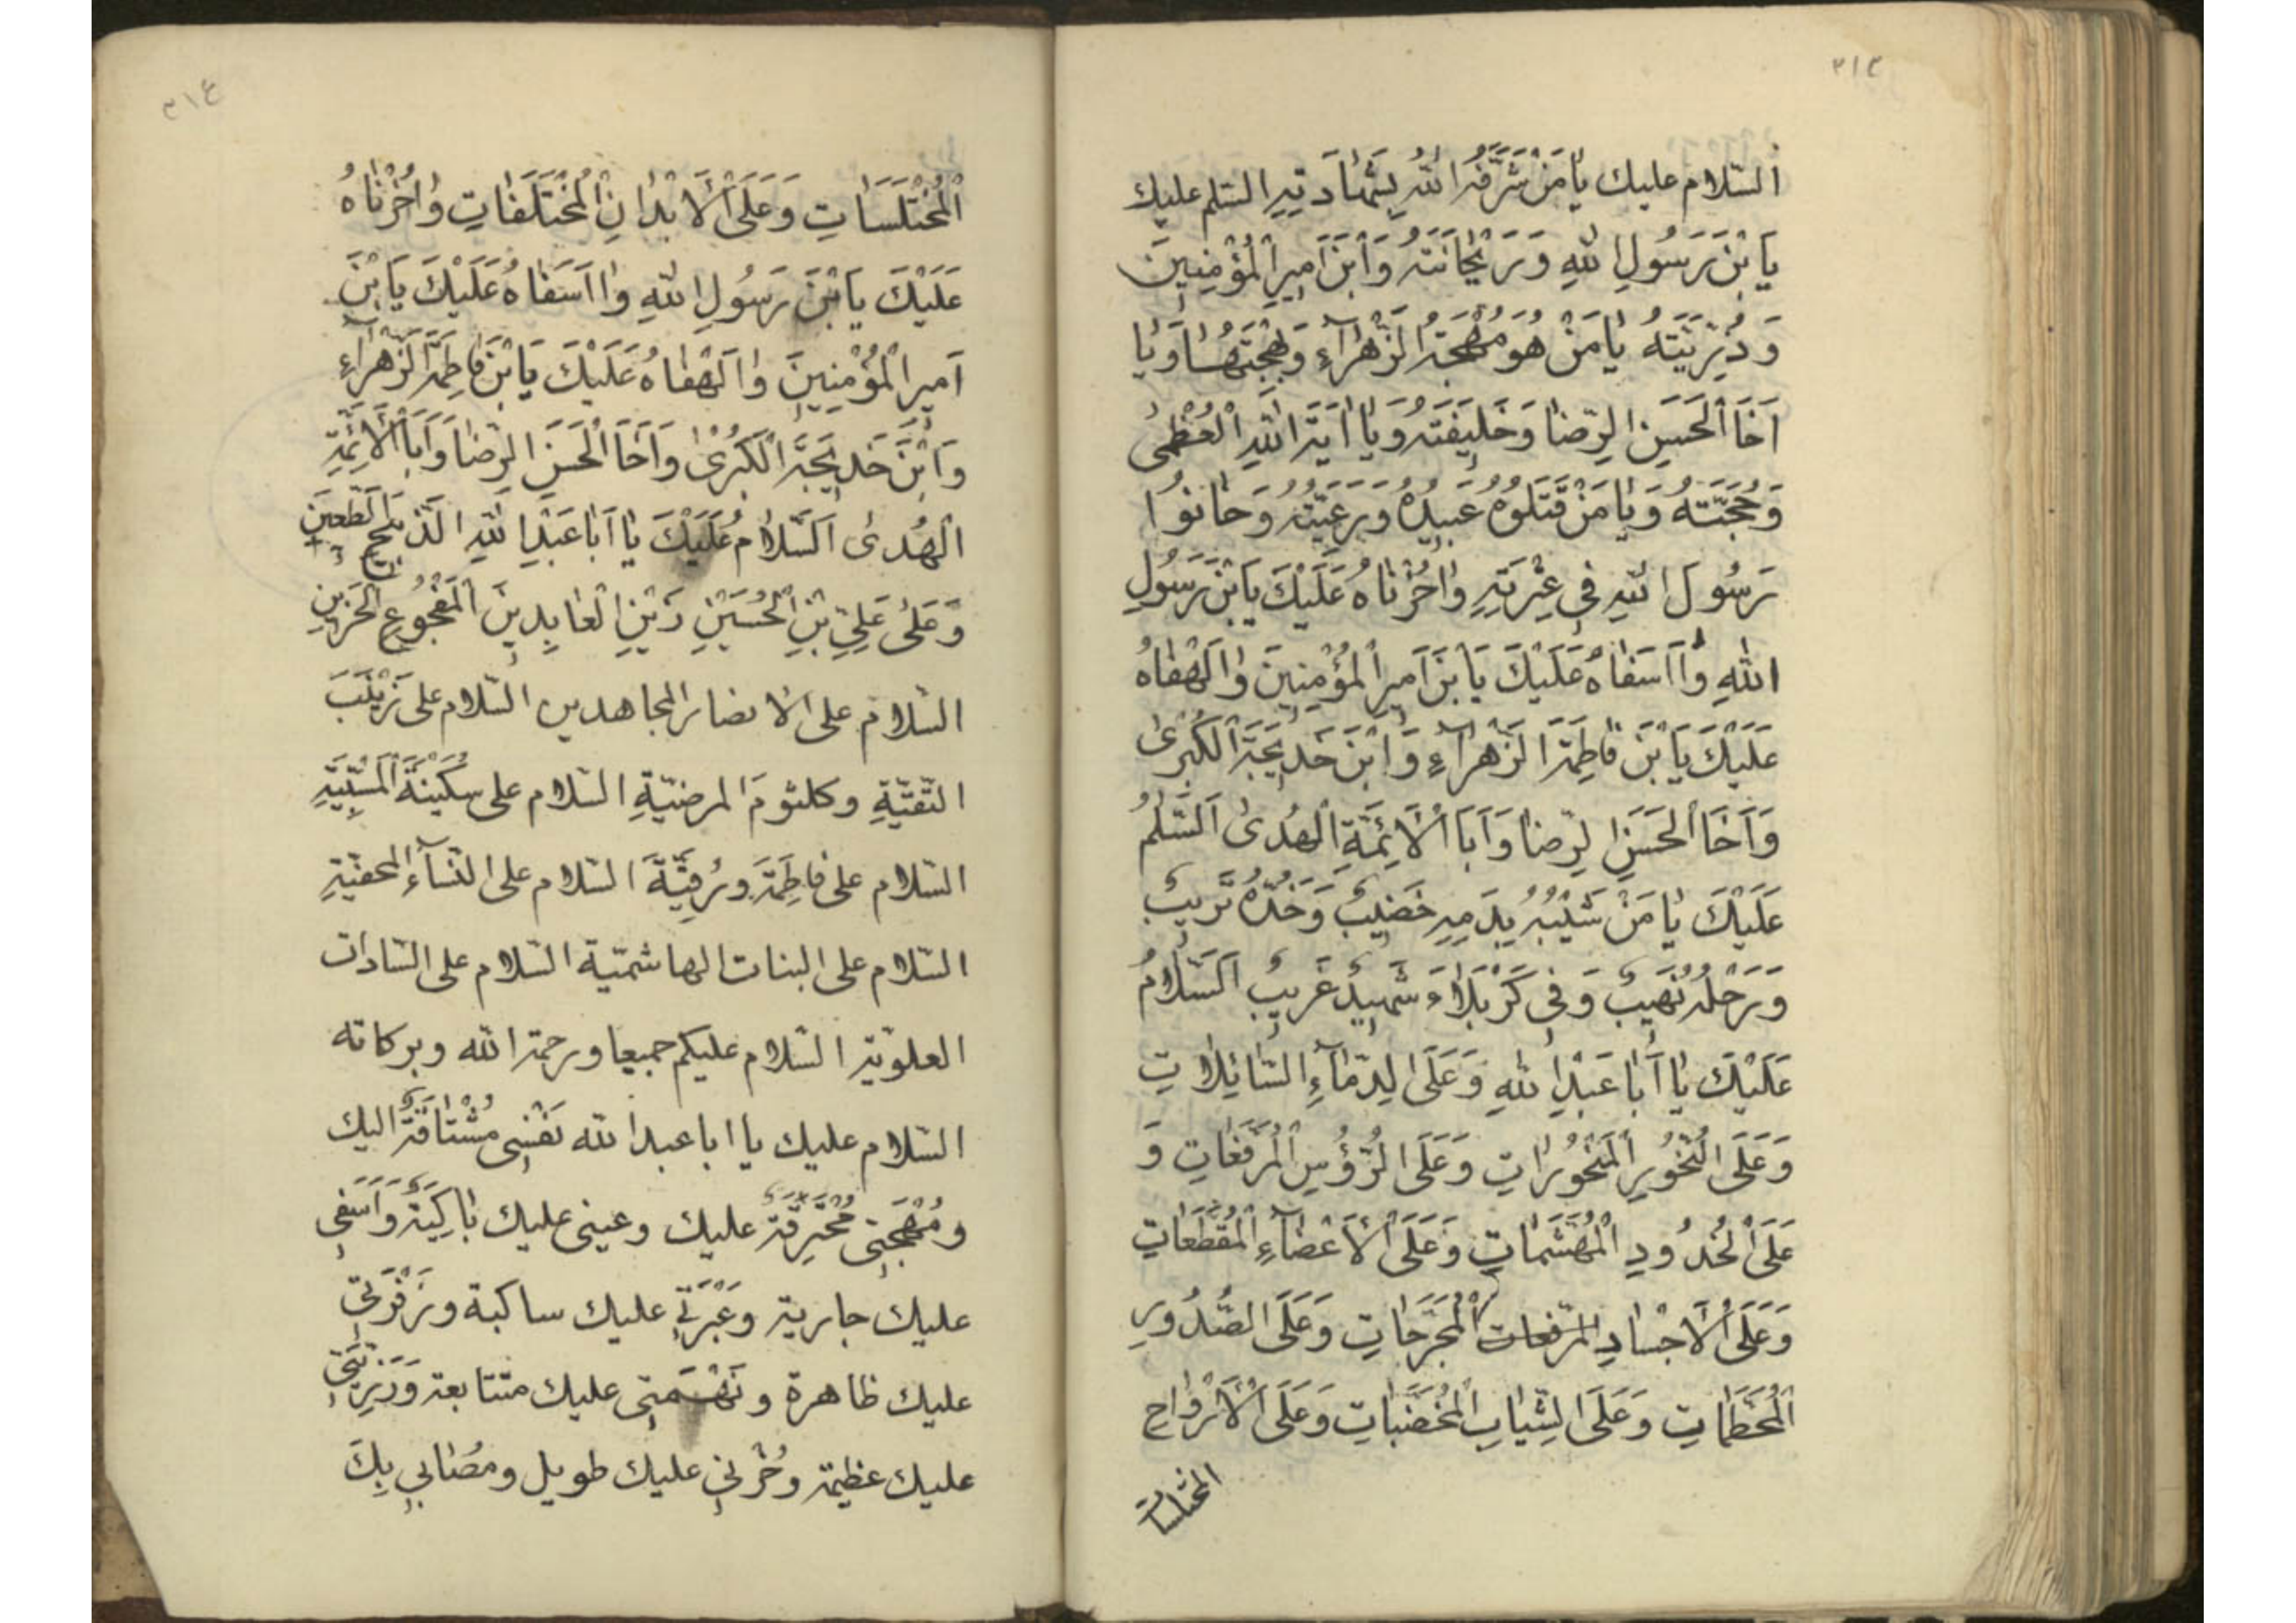 ٣١٣
السّلام عليك يَا مَنْ شَرَّفَهُ اللهُ بِشَهَادَتِهِ السّلم عليك
يَا بْنَ رَسُولِ اللهِ وَرَيْحَانَتَهُ وَابْنَ اَمِيرِ الْمُؤْمِنِينَ
وَذُرِّيَّتَهُ يَا مَنْ هُوَ مُهْجَةُ الزَّهْرَآءِ وَبَهْجَتُهَا وَيَا
اَخَا الْحَسَنِ الرِّضَا وَخَلِيفَتَهُ وَيَا اٰيَةَ اللهِ الْعُظْمٰى
وَحُجَّتَهُ وَيَا مَنْ قَتَلُوهُ عَبِيدُهُ وَرَعِيَّتُهُ وَخَانُوا
رَسُولَ اللهِ فِى عِتْرَتِهِ وَاحُزْنَاهُ عَلَيْكَ يَا بْنَ رَسُولِ
اللهِ وَا اَسَفَاهُ عَلَيْكَ يَا بْنَ اَمِيرِ الْمُؤْمِنِينَ وَا لَهْفَاهُ
عَلَيْكَ يَا بْنَ فَاطِمَةَ الزَّهْرَآءِ وَابْنَ خَدِيجَةَ الْكُبْرٰى
وَاَخَا الْحَسَنِ الرِّضَا وَاَبَا الْاَئِمَّةِ الْهُدٰى اَلسَّلٰمُ
عَلَيْكَ يَا مَنْ شَيْبُهُ بِدَمِهِ خَضِيبٌ وَخَدُّهُ تَرِيبٌ
وَرَحْلُهُ نَهِيبٌ وَفِى كَرْبَلَاءَ شَهِيدٌ غَرِيبٌ اَلسَّلَامُ
عَلَيْكَ يَا اَبَا عَبْدِ اللهِ وَعَلَى الدِّمَآءِ السَّائِلَاتِ
وَعَلَى النُّحُورِ الْمَنْحُورَاتِ وَعَلَى الرُّؤُسِ الْمُرَفَّعَاتِ وَ
عَلَى الْخُدُودِ الْمُهَشَّمَاتِ وَعَلَى الْاَعْضَآءِ الْمُقَطَّعَاتِ
وَعَلَى الْاَجْسَادِ المرفعات الْمُجَرَّحَاتِ وَعَلَى الصُّدُورِ
الْمُحَطَّمَاتِ وَعَلَى الثِّيَابِ الْمُخَضَّبَاتِ وَعَلَى الْاَرْوَاحِ
المختلسات
٣١٤
الْمُخْتَلَسَاتِ وَعَلَى الْاَبْدَانِ الْمُخْتَلَفَاتِ وَاحُزْنَاهُ
عَلَيْكَ يَا بْنَ رَسُولِ اللهِ وَا اَسَفَاهُ عَلَيْكَ يَا بْنَ
اَمِيرِ الْمُؤْمِنِينَ وَا لَهْفَاهُ عَلَيْكَ يَا بْنَ فَاطِمَةَ الزَّهْرَآءِ
وَابْنَ خَدِيجَةَ الْكُبْرٰى وَاَخَا الْحَسَنِ الرِّضَا وَاَبَا الْاَئِمَّةِ
الْهُدٰى اَلسَّلَامُ عَلَيْكَ يَا اَبَا عَبْدِ اللهِ الذَّبِيحِ الطَّعِينِ
وَعَلٰى عَلِيِّ بْنِ الْحُسَيْنِ زَيْنِ الْعَابِدِينَ الْمَفْجُوعِ الْحَزِينِ
السّلام على الانصار المجاهدين السّلام على زَيْنَبَ
التّقيّةِ وكلثومَ المرضيّةِ السّلام على سُكَيْنَةَ الْمَسْبِيَّةِ
السّلام على فَاطِمَةَ وَرُقَيَّةَ السّلام على النّسآءِ المحفيّةِ
السّلام على البنات الهاشميّة السّلام على السّادات
العلويّة السّلام عليكم جميعا ورحمة الله وبركاته
السّلام عليك يا ابا عبد الله نَفْسِى مُشْتَاقَةٌ اليك
ومُهْجَتِى مُحْتَرِقَةٌ عليك وعينى عليك بَاكِيَةٌ وَاَسَفِى
عليك جارية وَعَبْرَتِي عليك ساكبة وزَفْرَتِى
عليك ظاهرة ونَهْمَتِى عليك متتابعة وَرَزِيَّتِى
عليك عظيمة وحُزْنِي عليك طويل ومُصَابِي بِكَ